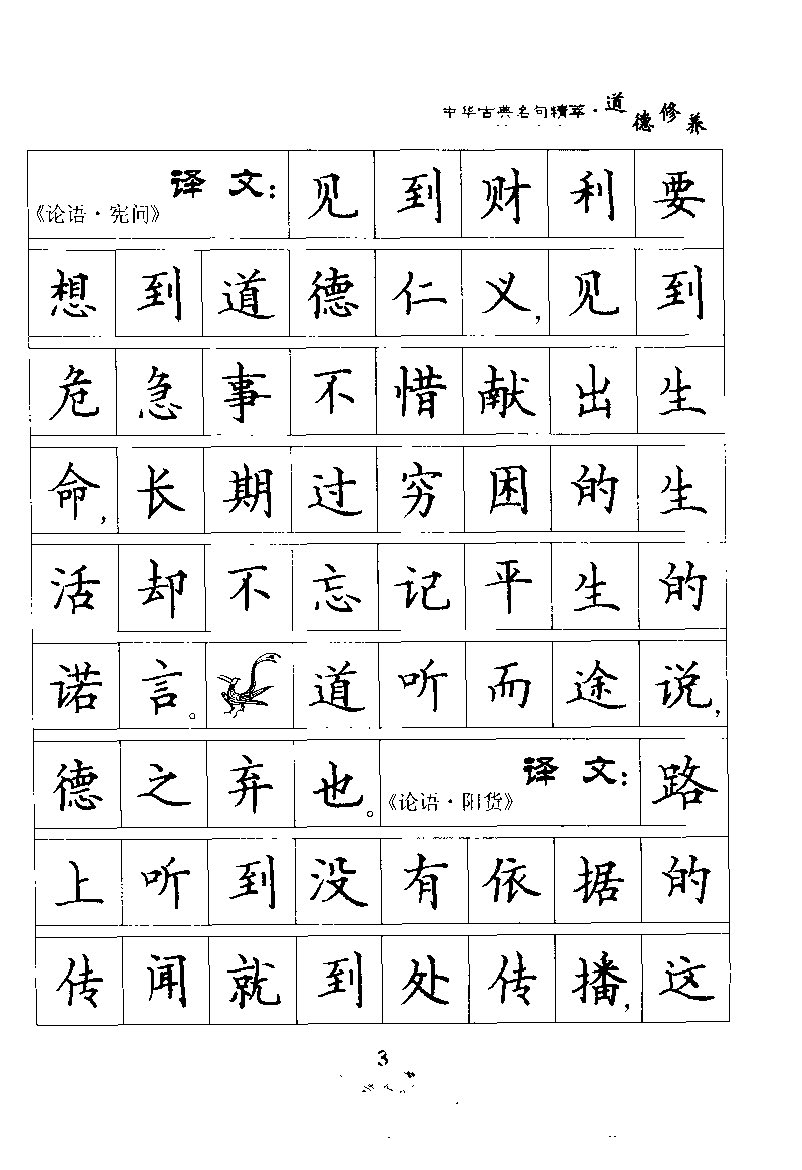 中华古典名句精萃·道德修养
译文：见到财利要
《论语·宪问》
想到道德仁义，见到
危急事不惜献出生
命，长期过穷困的生
活却不忘记平生的
诺言。道听而途说，
德之弃也。《论语·阳货》译文：路
上听到没有依据的
传闻就到处传播，这
3